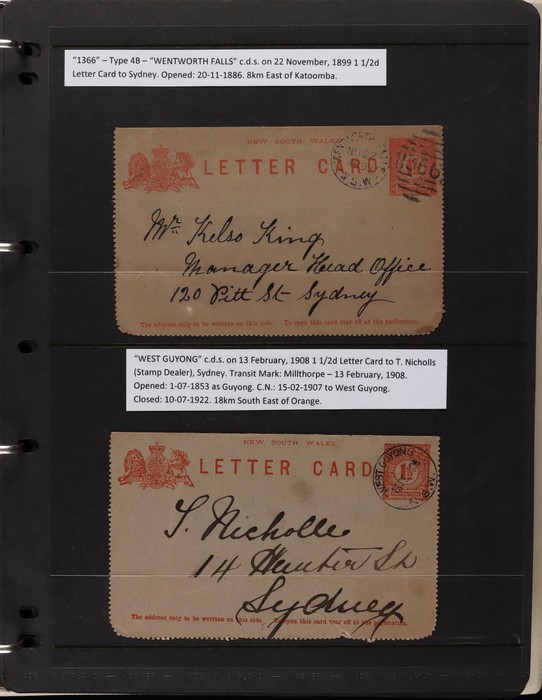 "1366" – Type 4B – "WENTWORTH FALLS" c.d.s. on 22 November, 1899 1 1/2d
Letter Card to Sydney. Opened: 20-11-1886. 8km East of Katoomba.
NEW SOUTH WALES
LETTER CARD
WENTWORTH FALLS
N.S.W
1366
Mr. Kelso King
Manager Head Office
120 Pitt St Sydney
The address only to be written on this side. To open this card tear off at the perforation.
"WEST GUYONG" c.d.s. on 13 February, 1908 1 1/2d Letter Card to T. Nicholls
(Stamp Dealer), Sydney. Transit Mark: Millthorpe – 13 February, 1908.
Opened: 1-07-1853 as Guyong. C.N.: 15-02-1907 to West Guyong.
Closed: 10-07-1922. 18km South East of Orange.
NEW SOUTH WALES
LETTER CARD
WEST GUYONG
N.S.W
1½
T. Nicholls
14 Hunter St
Sydney
The address only to be written on this side. To open this card tear off at the perforation.